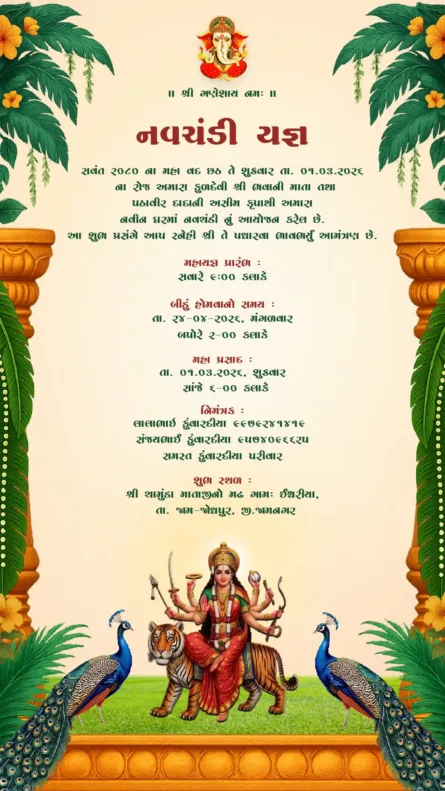 ॥ શ્રી ગણેશાય નમઃ ॥
નવચંડી યજ્ઞ
સવંત ૨૦૮૦ ના મહા વદ છઠ તે શુક્રવાર તા. ૦૧.૦૩.૨૦૨૬
ના રોજ અમારા કુળદેવી શ્રી ભવાની માતા તથા
પઠાવીર દાદાની અસીમ કૃપાથી અમારા
નવીન ઘરમાં નવચંડી નું આયોજન કરેલ છે.
આ શુભ પ્રસંગે આપ સ્નેહી શ્રી તે પધારવા ભાવભર્યું આમંત્રણ છે.
મહાયજ્ઞ પ્રારંભ :
સવારે ૯:૦૦ કલાકે
બીહું હોમવાનો સમય :
તા. ૨૪-૦૪-૨૦૨૬, મંગળવાર
બપોરે ૨-૦૦ કલાકે
મહા પ્રસાદ :
તા. ૦૧.૦૩.૨૦૨૬, શુક્રવાર
સાંજે ૬-૦૦ કલાકે
નિમંત્રક :
લાલાભાઈ હુંવારદીયા ૯૯૭૯૨૪૧૪૧૯
સંજયભાઈ હુંવારદીયા ૯૫૭૪૦૯૬૬૨૫
સમસ્ત હુંવારદીયા પરીવાર
શુભ સ્થળ :
શ્રી ચામુંડા માતાજીનો મઢ ગામઃ ઈશ્વરીયા,
તા. જામ-જોધપુર, જી.જામનગર